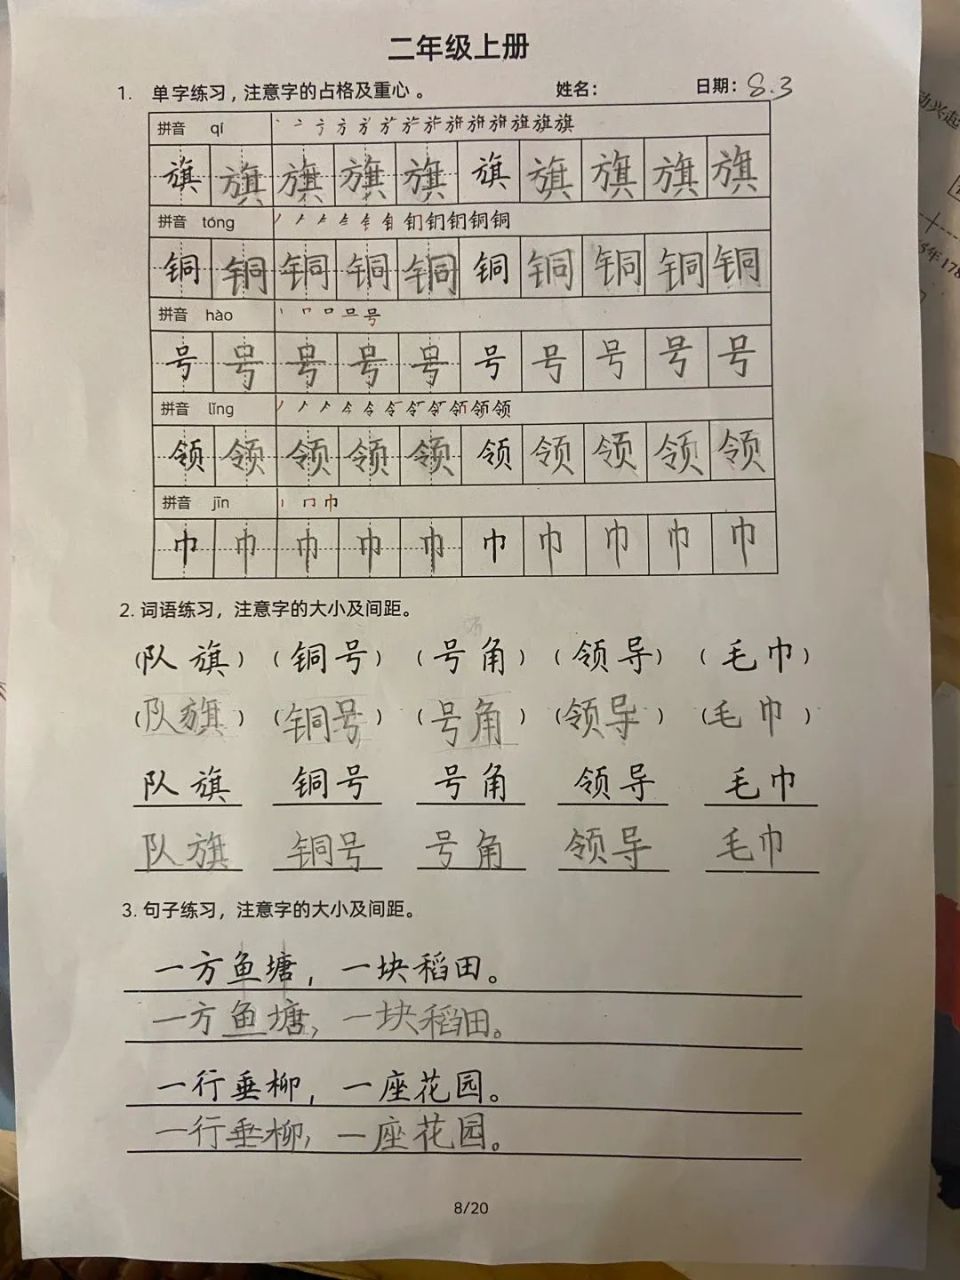 二年级上册
1. 单字练习，注意字的占格及重心。 姓名： 日期：8.3
拼音 qí
旗 旗 旗 旗 旗 旗 旗 旗 旗 旗
拼音 tóng
铜 铜 铜 铜 铜 铜 铜 铜 铜 铜
拼音 hào
号 号 号 号 号 号 号 号 号 号
拼音 lǐng
领 领 领 领 领 领 领 领 领 领
拼音 jīn
巾 巾 巾 巾 巾 巾 巾 巾 巾 巾
2. 词语练习，注意字的大小及间距。
（队旗）（铜号）（号角）（领导）（毛巾）
（队旗）（铜号）（号角）（领导）（毛巾）
队旗 铜号 号角 领导 毛巾
队旗 铜号 号角 领导 毛巾
3. 句子练习，注意字的大小及间距。
一方鱼塘，一块稻田。
一方鱼塘，一块稻田。
一行垂柳，一座花园。
一行垂柳，一座花园。
8/20